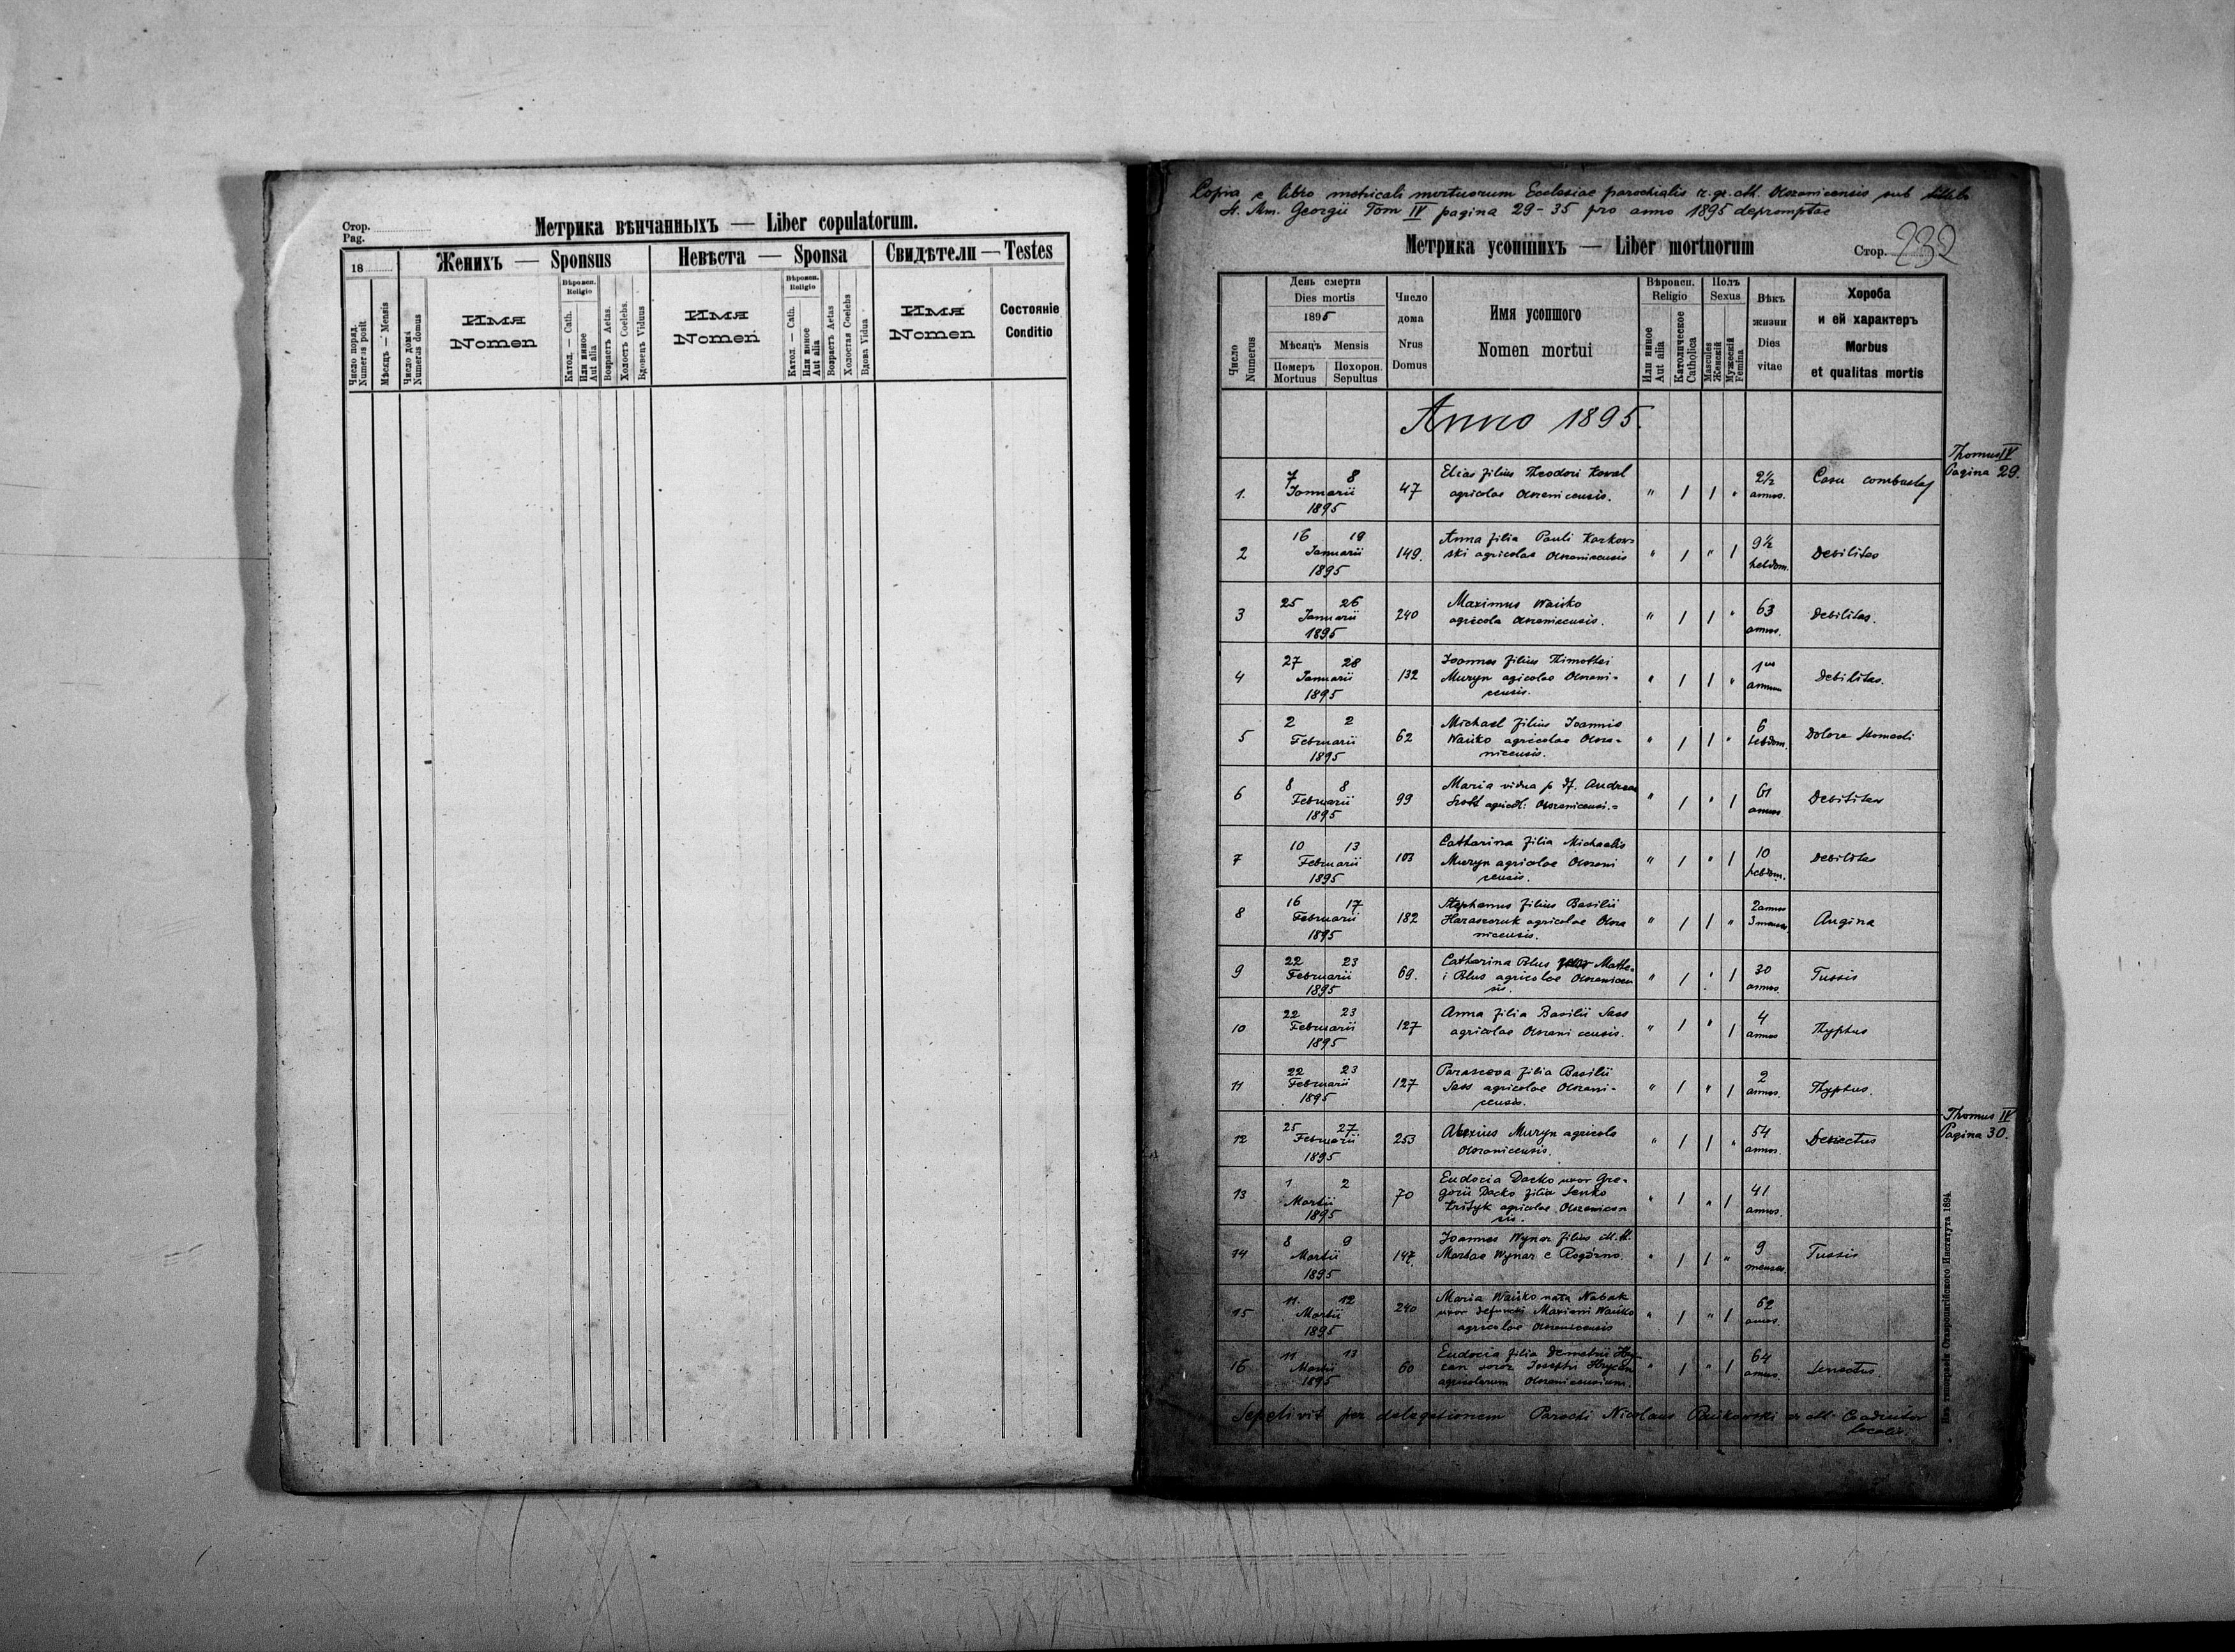 Стор.
Pag.
Метрика вѣнчанныхъ — Liber copulatorum.
18
Женихъ — Sponsus
Невѣста — Sponsa
Свидѣтели — Testes
Число поряд.
Numerus posit
Мѣсяцъ — Mensis
Число дома
Numerus domus
Имя
Nomen
Вѣроисп.
Religio
Катол. — Cath.
Или иное
Aut alia
Возрастъ Aetas.
Холостъ Coelebs.
Вдовецъ Viduus
Имя
Nomen
Вѣроисп.
Religio
Катол. — Cath.
Или иное
Aut alia
Возрастъ Aetas
Холостая Coelebs
Вдова Vidua
Имя
Nomen
Состояніе
Conditio
Copia e libro metricali mortuorum Ecclesiae parochialis r. gr. cath. sub titulo
St. Mm. Georgii Tom IV pagina 29-35 pro anno 1895 depromptae
Метрика усопшихъ — Liber mortuorum
Стор. 232
Число
Numerus
День смерти
Dies mortis
1895
Мѣсяцъ Mensis
Померъ
Mortuus
Похорон.
Sepultus
Число
дома
Nrus
Domus
Имя усопшого
Nomen mortui
Вѣроисп.
Religio
Или иное
Aut alia
Католическое
Catholica
Полъ
Sexus
Mascules
Женскій
Мужескій
Femina
Вѣкъ
жизни
Dies
vitae
Хороба
и ей характеръ
Morbus
et qualitas mortis
Anno 1895.
Thomus IV
Pagina 29.
1. 7 8 Januarii 1895 47 Elias filius Theodori Koval
agricolae " / / " 2½ annos. Casu
2 16 19 Januarii 1895 149. Anna filia Pauli Karkow
ski agricolae " / " / 9½ hebdom. Debilitas
3 25 26 Januarii 1895 240 Maximus Wańko
agricola " / / " 63 annos. Debilitas.
4 27 28 Januarii 1895 132 Joannes filius Thimothei
Muryn agricolae
censis. " / / " 1 annum Debilitas.
5 2 2 Februarii 1895 62 Michael filius Joannis
Wańko agricolae
nicensis. " / / " 6 hebdom. Dolore stomachi
6 8 8 Februarii 1895 99 Maria vidua p. df. Andreae
agricol: " / " / 61 annos Debilitas
7 10 13 Februarii 1895 103 Catharina filia Michaelis
Muryn agricolae
censis. " / " / 10 hebdom. Debilitas
8 16 17 Februarii 1895 182 Stephanus filius Basilii
agricolae
nicensis. " / / " 2 annos 3 menses Angina
9 22 23 Februarii 1895 69. Catharina Blus Mathe-
i Blus agricolae
sis. " / " / 30 annos. Tussis
10 22 23 Februarii 1895 127 Anna filia Basilii Sass
agricolae " / " / 4 annos Thyphus
11 22 23 Februarii 1895 127 Parascova filia Basilii
Sass agricolae
censis. " / " / 2 annos. Thyphus.
Thomus IV
Pagina 30.
12 25 27 Februarii 1895 253 Alexius Muryn agricola
" / / " 54 annos.
13 1 2 Martii 1895 70 Eudocia Dacko uxor Gre-
gorii Dacko filia Senko
agricolae
sis. " / " / 41 annos.
14 8 9 Martii 1895 147 Joannes Wynar filius ill. M.
Mariae Wynar e Rogózno. " / / " 9 menses. Tussis
15 11. 12 Martii 1895 240 Maria Wańko nata Nabak
uxor defuncti Maximi Wańko
agricolae " / " / 62 annos.
16 11 13 Martii 1895 60 Eudocia filia Demetrii Hry-
can soror Josephi Hrycan
agricolarum " / " / 64 annos. Senectus.
Sepelivit per delegationem Parochi Nicolaus Coadiutor
localis.
Изъ типографіи Ставропигійского Института 1894.